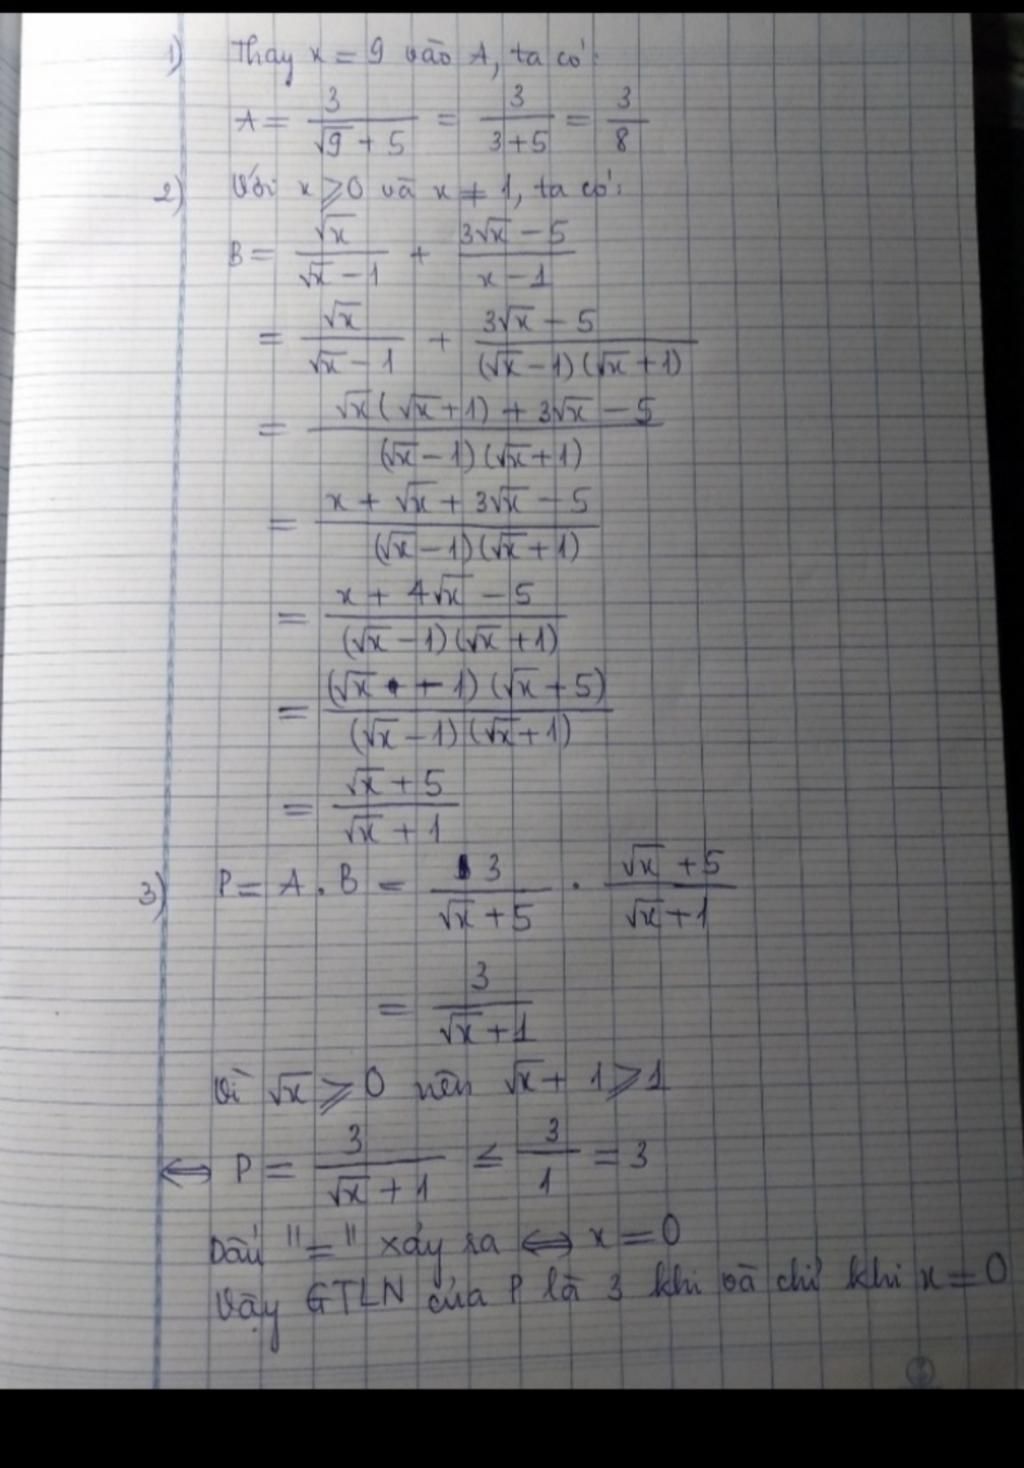 1) Thay x = 9 vào A, ta có:
A = 3/(√9 + 5) = 3/(3+5) = 3/8
2) Với x ⩾ 0 và x ≠ 1, ta có:
B = √x/(√x - 1) + (3√x - 5)/(x - 1)
= √x/(√x - 1) + (3√x - 5)/((√x - 1)(√x + 1))
= (√x(√x+1) + 3√x - 5)/((√x - 1)(√x+1))
= (x + √x + 3√x - 5)/((√x - 1)(√x + 1))
= (x + 4√x - 5)/((√x - 1)(√x + 1))
= ((√x - 1)(√x + 5))/((√x - 1)(√x+1))
= (√x + 5)/(√x + 1)
3) P = A . B = 3/(√x + 5) . (√x + 5)/(√x + 1)
= 3/(√x + 1)
Vì √x ⩾ 0 nên √x + 1 ⩾ 1
⇔ P = 3/(√x + 1) ≤ 3/1 = 3
Dấu "=" xảy ra ⇔ x = 0
Vậy GTLN của P là 3 khi và chỉ khi x = 0